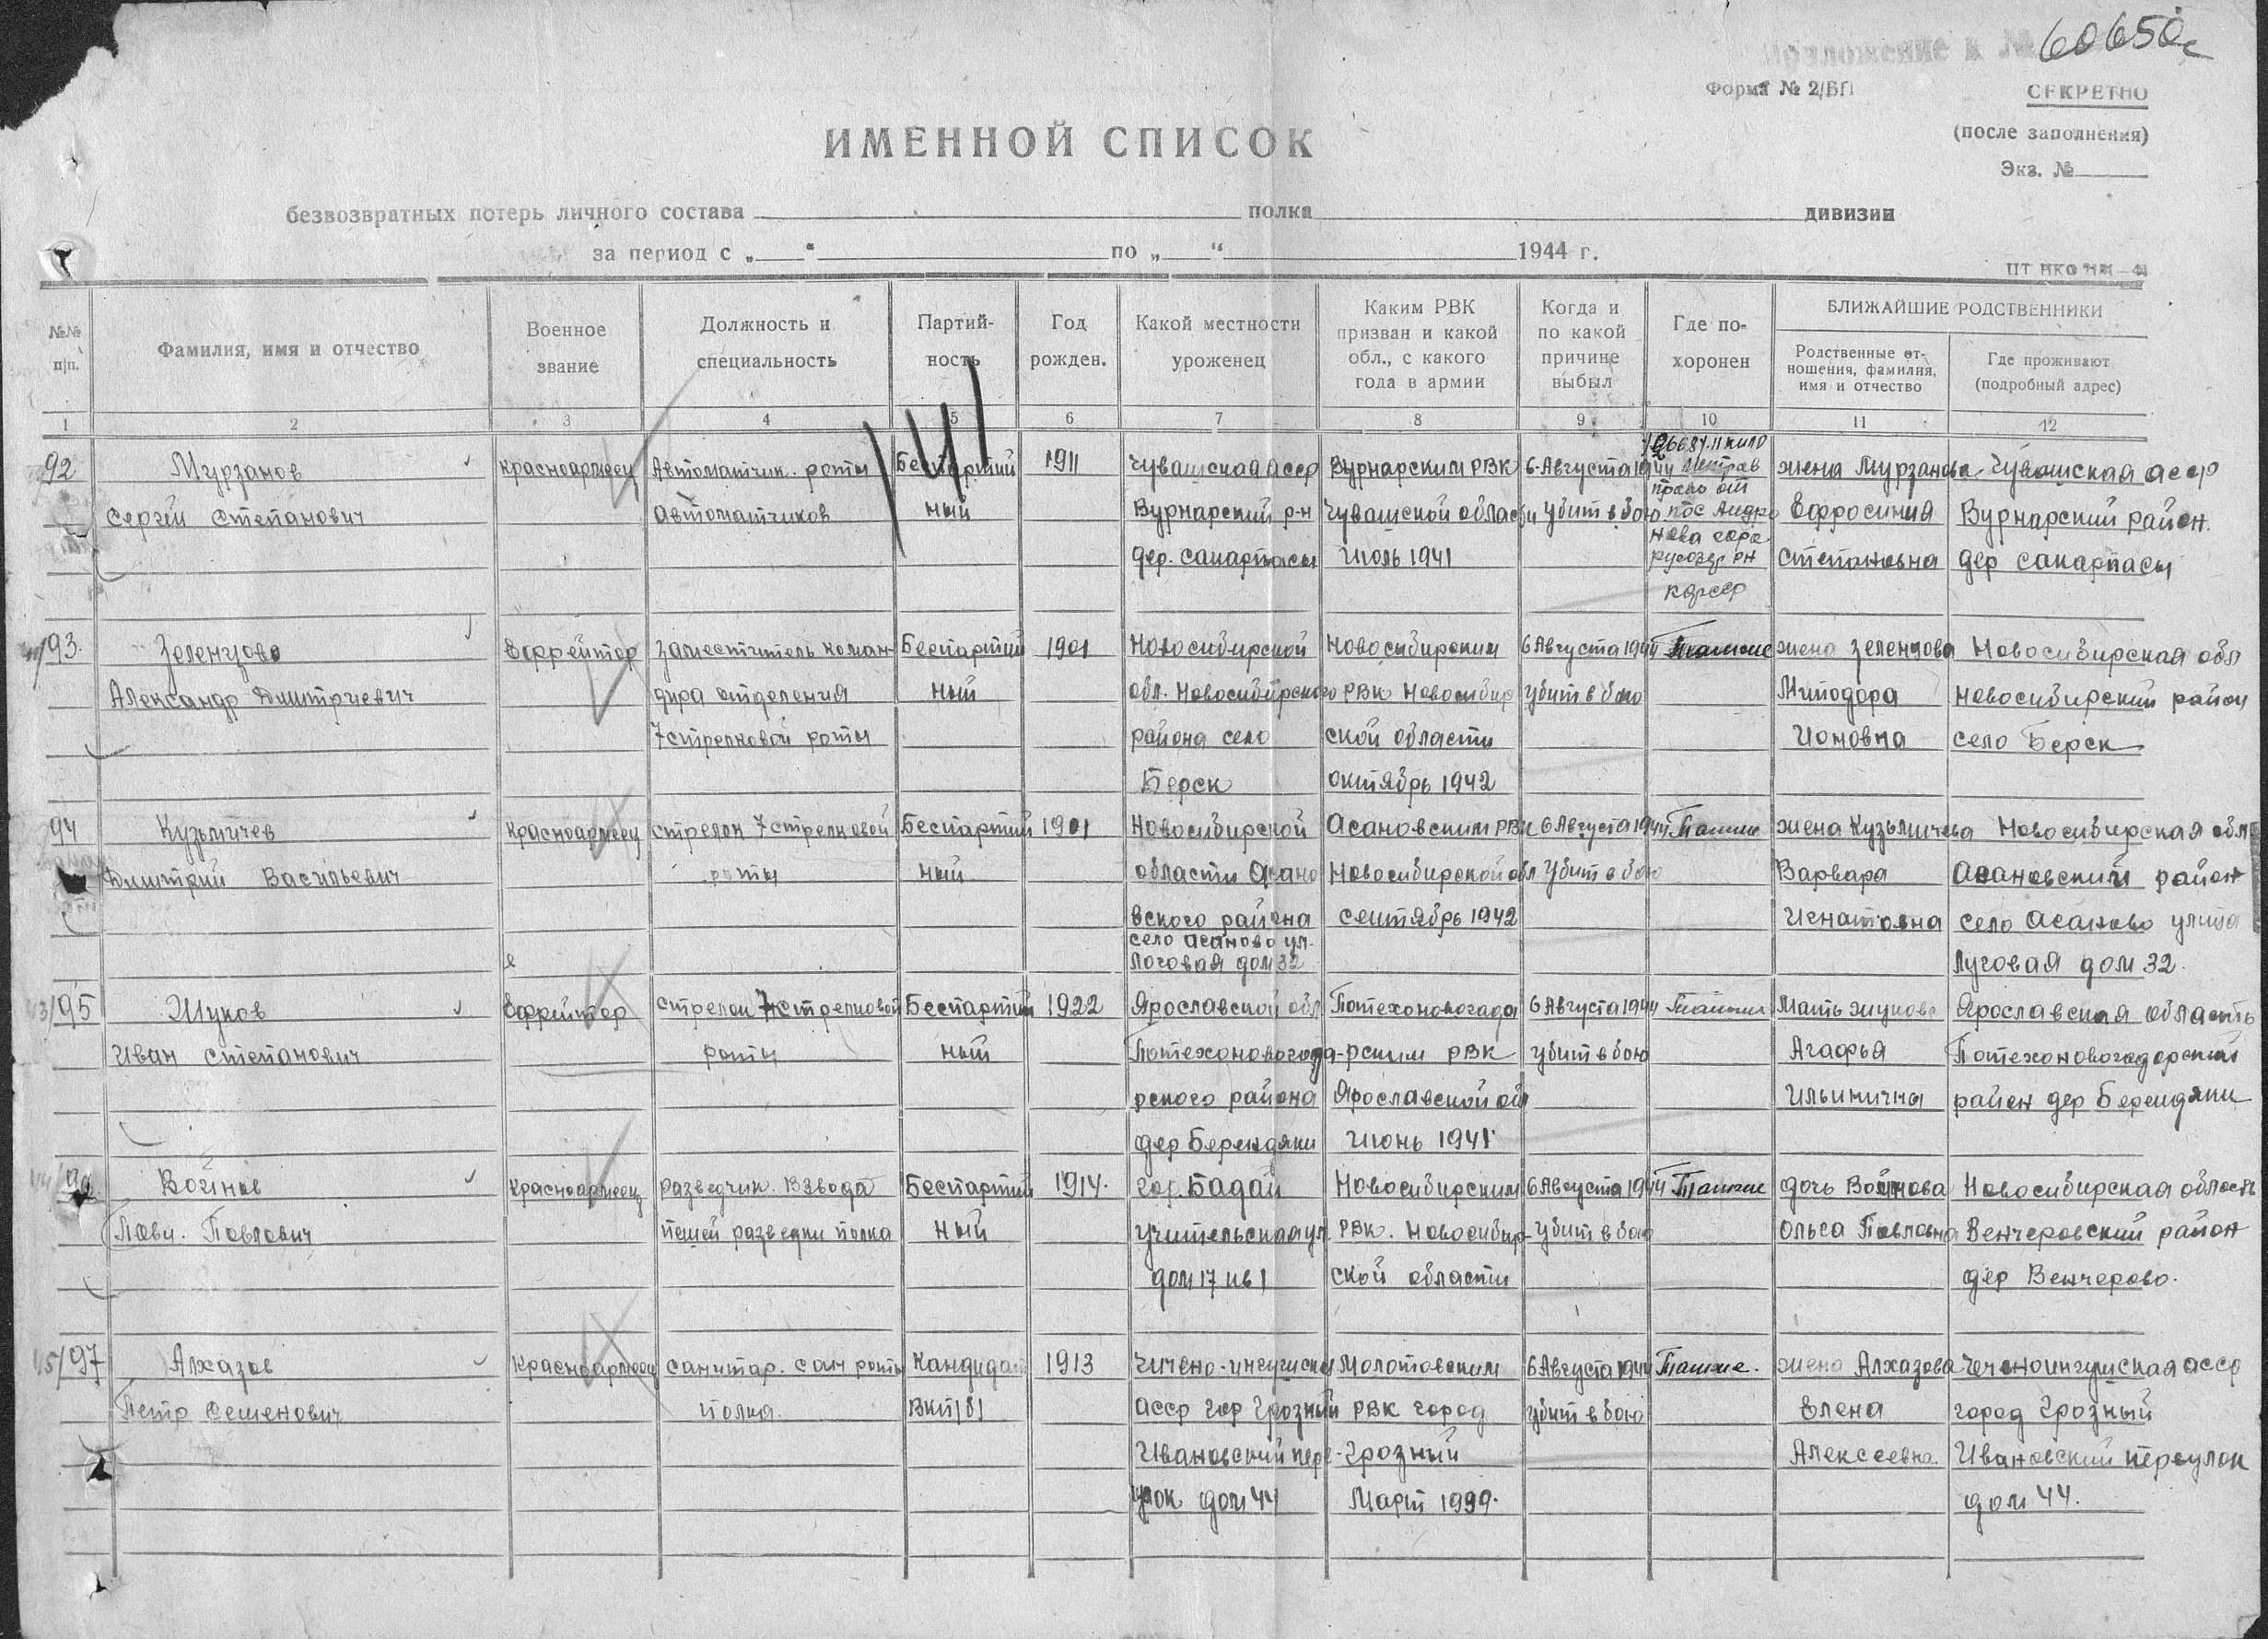 60650с
Приложение к №
Форма № 2/БП
СЕКРЕТНО
(после заполнения)
Экз. №
ИМЕННОЙ СПИСОК
безвозвратных потерь личного состава полка дивизии
за период с „ “ по „ “ 1944 г.
№№ п/п.
Фамилия, имя и отчество
Военное звание
Должность и специальность
Партий-ность
Год рожден.
Какой местности уроженец
Каким РВК призван и какой обл., с какого года в армии
Когда и по какой причине выбыл
Где по-хоронен
БЛИЖАЙШИЕ РОДСТВЕННИКИ
Родственные от-ношения, фамилия, имя и отчество
Где проживают (подробный адрес)
1 2 3 4 5 6 7 8 9 10 11 12
141
92 Мурзанов Красноармеец Автоматчик роты Беспартий 1911 Чувашская асср Вурнарским РВК 6 Августа 1944 жена Мурзанова Чувашская асср
Сергей Степанович автоматчиков ный Вурнарский р-н Чувашской области убит в бою пос Андро Ефросиния Вурнарский район.
нова гора
дер. санарпасы Июль 1941 Степановна дер санарпасы
карсср
93. Зеленцов Ефрейтор заместитель коман- Беспартий 1901 Новосибирской Новосибирским 6 Августа 1944 Там же жена зеленцова Новосибирская обл
Александр Дмитриевич дира отделения ный обл. Новосибирского РВК Новосибир убит в бою Миподора Новосибирский район
7 стрелковой роты района село ской области Ионовна село Берск
Берск октябрь 1942
94 Кузьмичев Красноармеец стрелок 7 стрелковой Беспартий 1901 Новосибирской Асановским РВК 6 Августа 1944 Там же жена Кузьмичева Новосибирская обл
Дмитрий Васильевич роты ный области Асано Новосибирской обл убит в бою Варвара Асановский район
вского района сентябрь 1942 Игнатовна село Асаново улица
село Асаново ул.
Логовая дом 32 Луговая дом 32.
95 Жуков Ефрейтор стрелок 7 стрелковой Беспартий 1922 Ярославской обл Потехоновогада 6 Августа 1944 Там же Мать жукова Ярославская область
Иван Степанович роты ный Потехоновогода-рским РВК убит в бою Агафья Потехоновогодорский
рского района Ярославской об Ильинична район дер Берендяки
дер Берендяки Июнь 1941
Войнов Красноармеец разведчик взвода Беспартий 1914. гор. Бадай Новосибирским 6 Августа 1944 Там же дочь Войнова Новосибирская область
Павл. Павлович пешей разведки полка ный учительская ул. РВК. Новосибир- убит в бою Ольга Павловна Венчеровский район
дом 17 кв 1 ской области дер Венчерово.
97 Алхазов Красноармеец санитар. сан роты Кандидат 1913 Чичено-ингушской Молотовским 6 Августа 1944 Там же. жена Алхазова Чеченоингушская асср
Петр Семенович полка. ВКП(б) асср гор Грозный РВК город убит в бою Елена город Грозный
Ивановский пере- Грозный Алексеевна. Ивановский переулок
улок дом 44 Март 1939. дом 44.